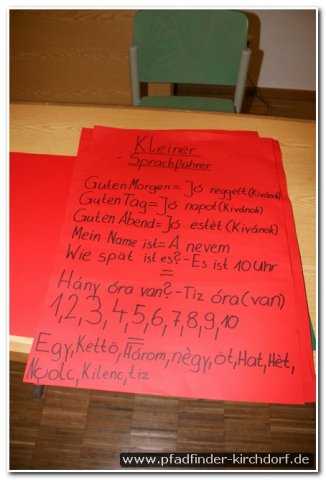 Kleiner
Sprachführer
Guten Morgen = Jó reggelt (Kivánok)
Guten Tag = Jó napot (Kivánok)
Guten Abend = Jó estét (Kivánok)
Mein Name ist = A nevem
Wie spät ist es? - Es ist 10 Uhr
=
Hány óra van? - Tiz óra (van)
1, 2, 3, 4, 5, 6, 7, 8, 9, 10
=
Egy, Kettö, Három, nègy, öt, Hat, Hèt,
Nyolc, Kilenc, tiz
www.pfadfinder-kirchdorf.de